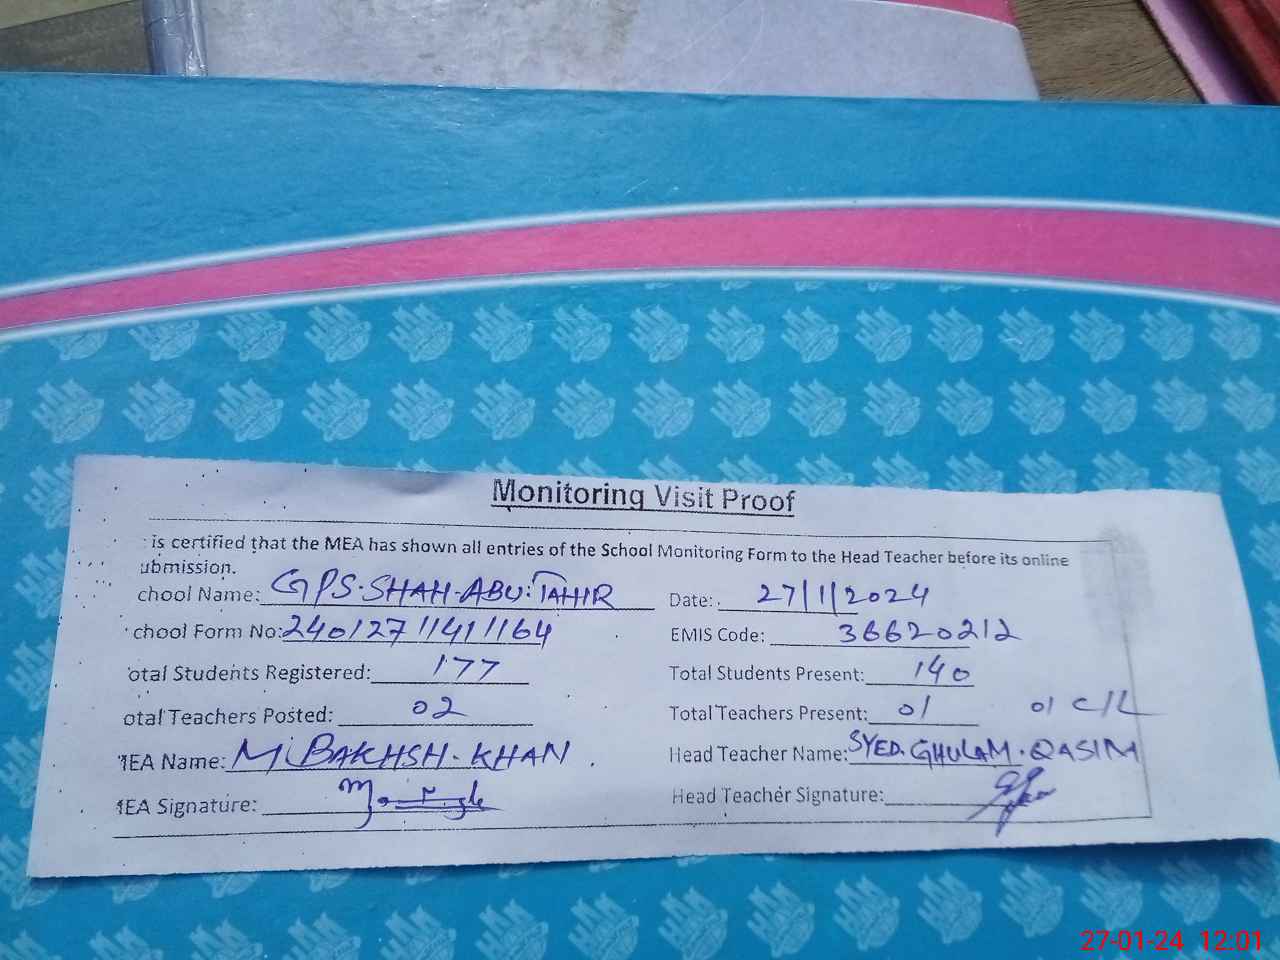 Monitoring Visit Proof
is certified that the MEA has shown all entries of the School Monitoring Form to the Head Teacher before its online
ubmission.
chool Name: GPS.SHAH.ABU:TAHIR Date: 27/1/2024
chool Form No: 24012711411164 EMIS Code: 36620212
otal Students Registered: 177 Total Students Present: 140
otal Teachers Posted: 02 Total Teachers Present: 01 01 C/L
MEA Name: M.BAKHSH.KHAN Head Teacher Name: SYED.GHULAM.QASIM
MEA Signature: Head Teacher Signature:
27-01-24 12:01